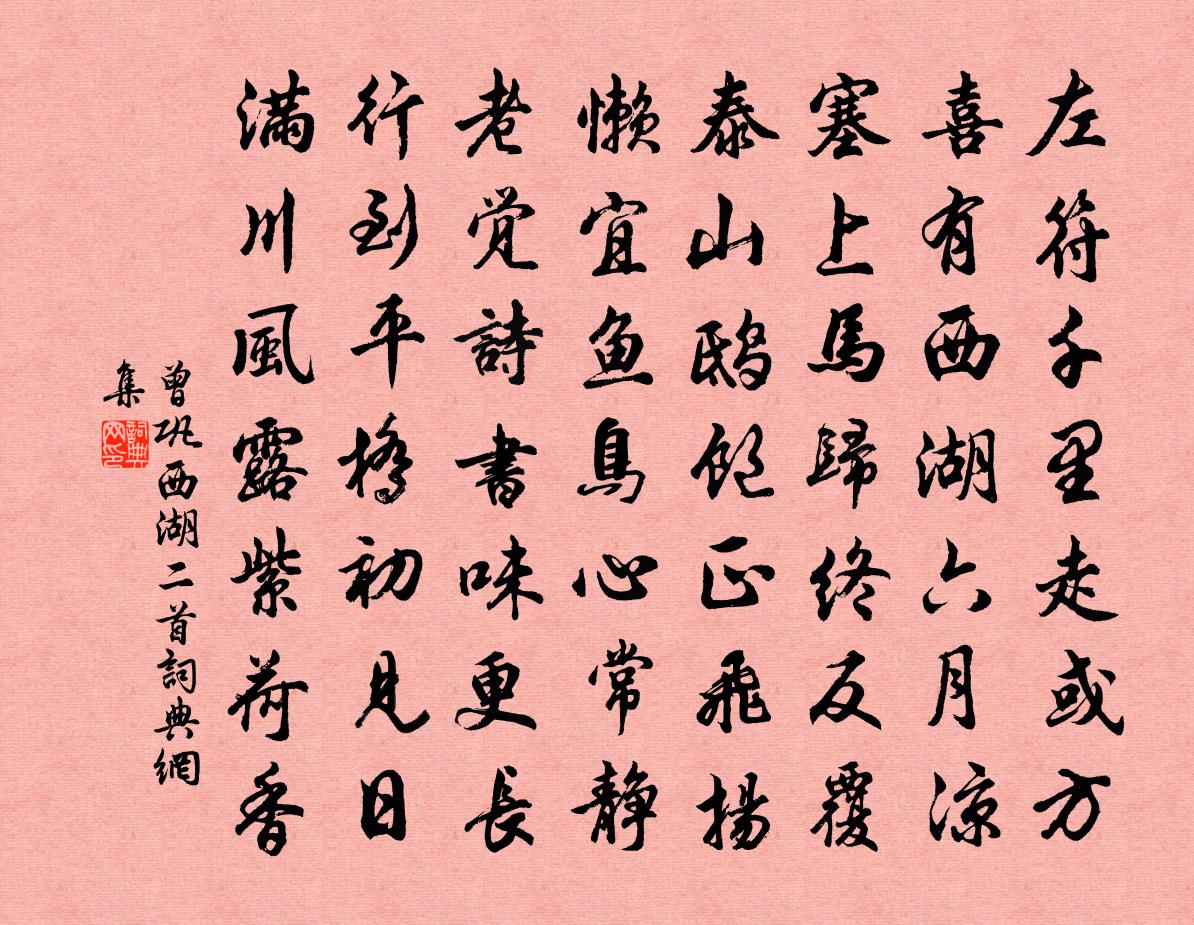 左符千里走或方
喜有西湖六月凉
塞上馬歸終反覆
泰山鴟飽正飛揚
懶宜魚鳥心常静
老覺詩書味更長
行到平橋初見日
滿川風露紫荷香
曾巩西湖二首詞典網
集
詞典
网印